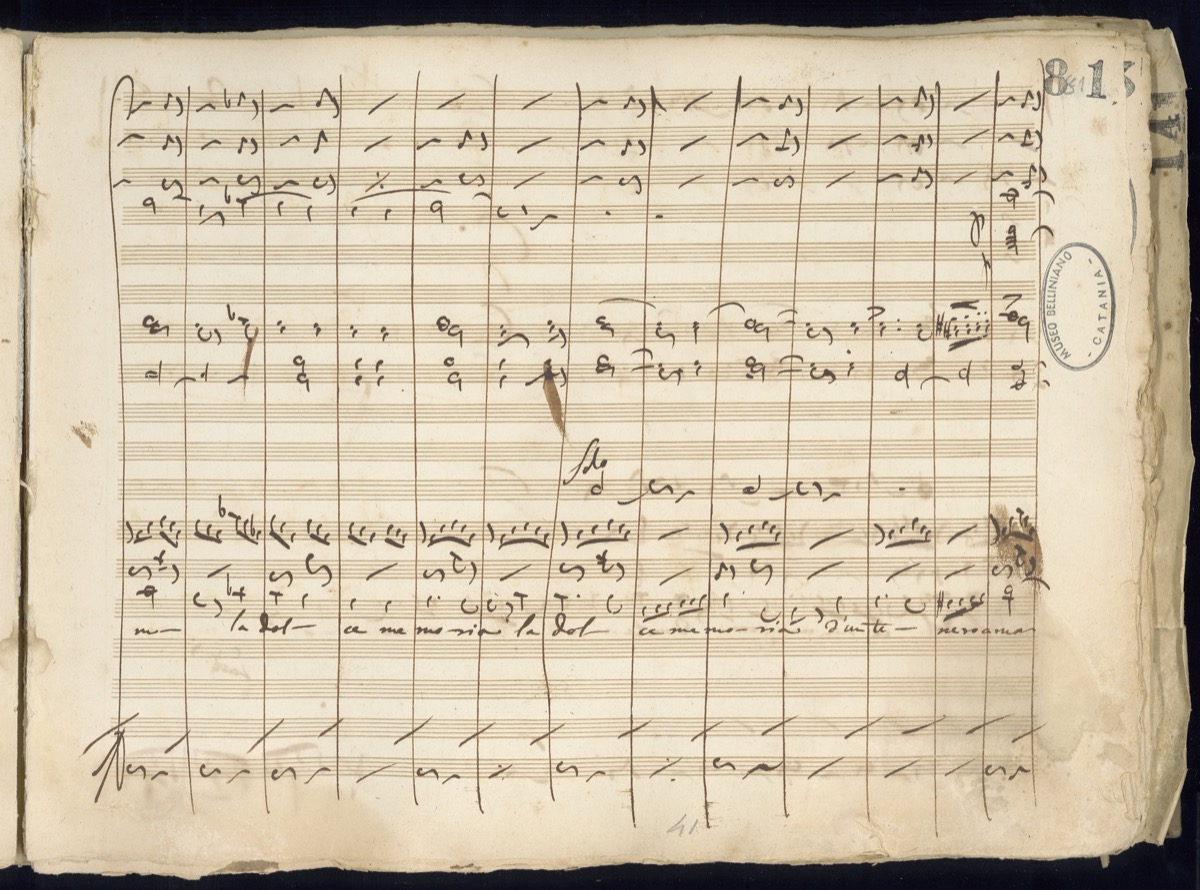 81
MUSEO BELLINIANO
- CATANIA -
Solo
la dol- ce me mo ria la dol ce me mo- ria d'un te- nero amor
41